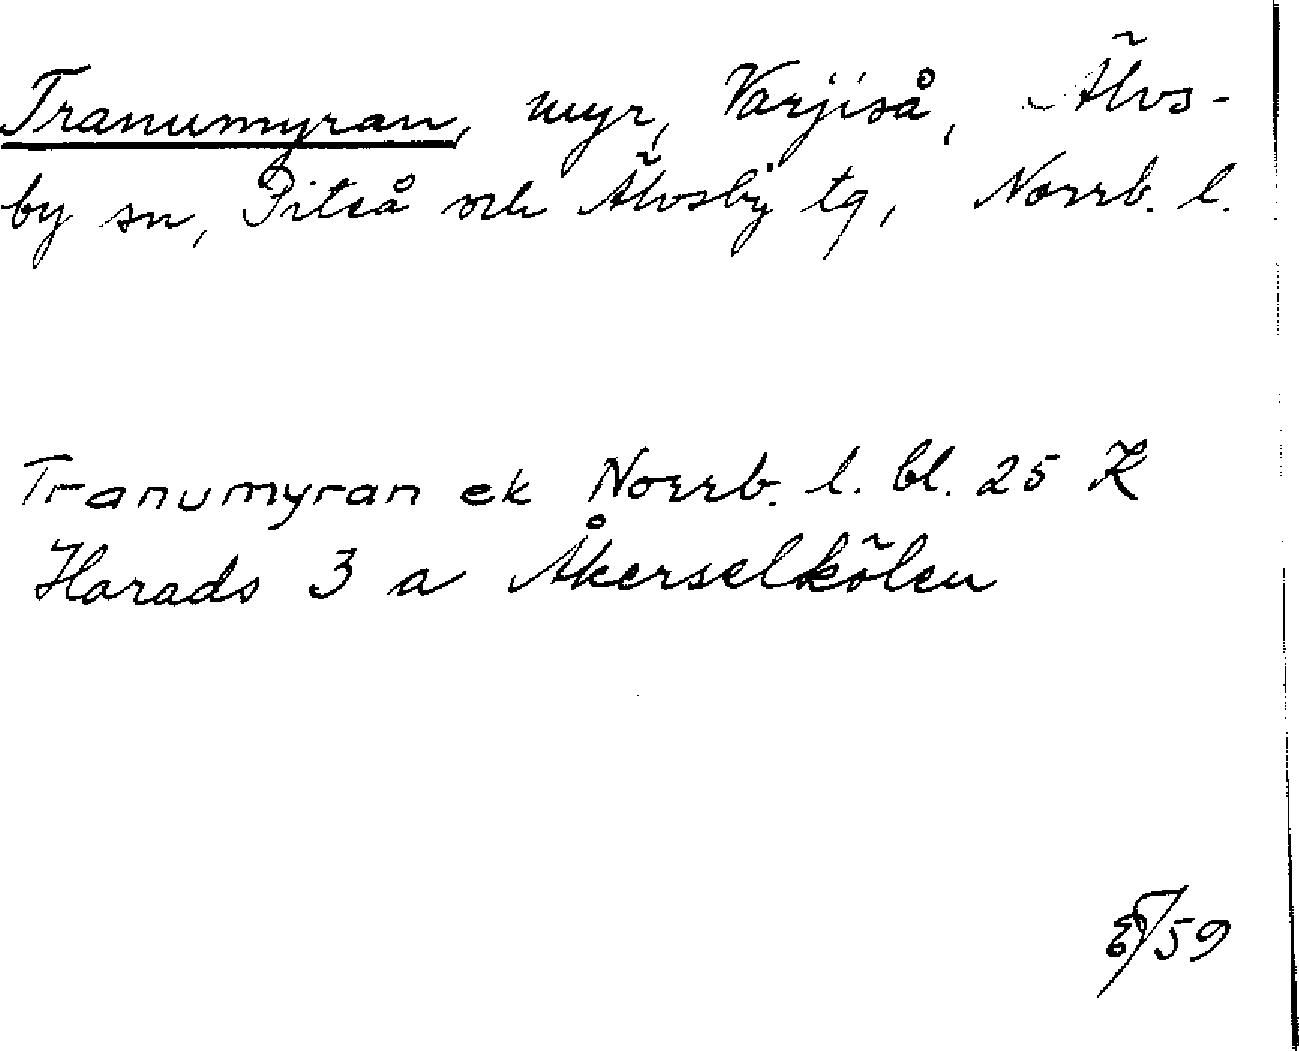 Tranumyran, myr, Varjiså, Älvs-
by sn, Piteå och Älvsby tg, Norrb. l.
Tranumyran ek Norrb. l. bl. 25 K
Harads 3 a Åkerselkölen
/59